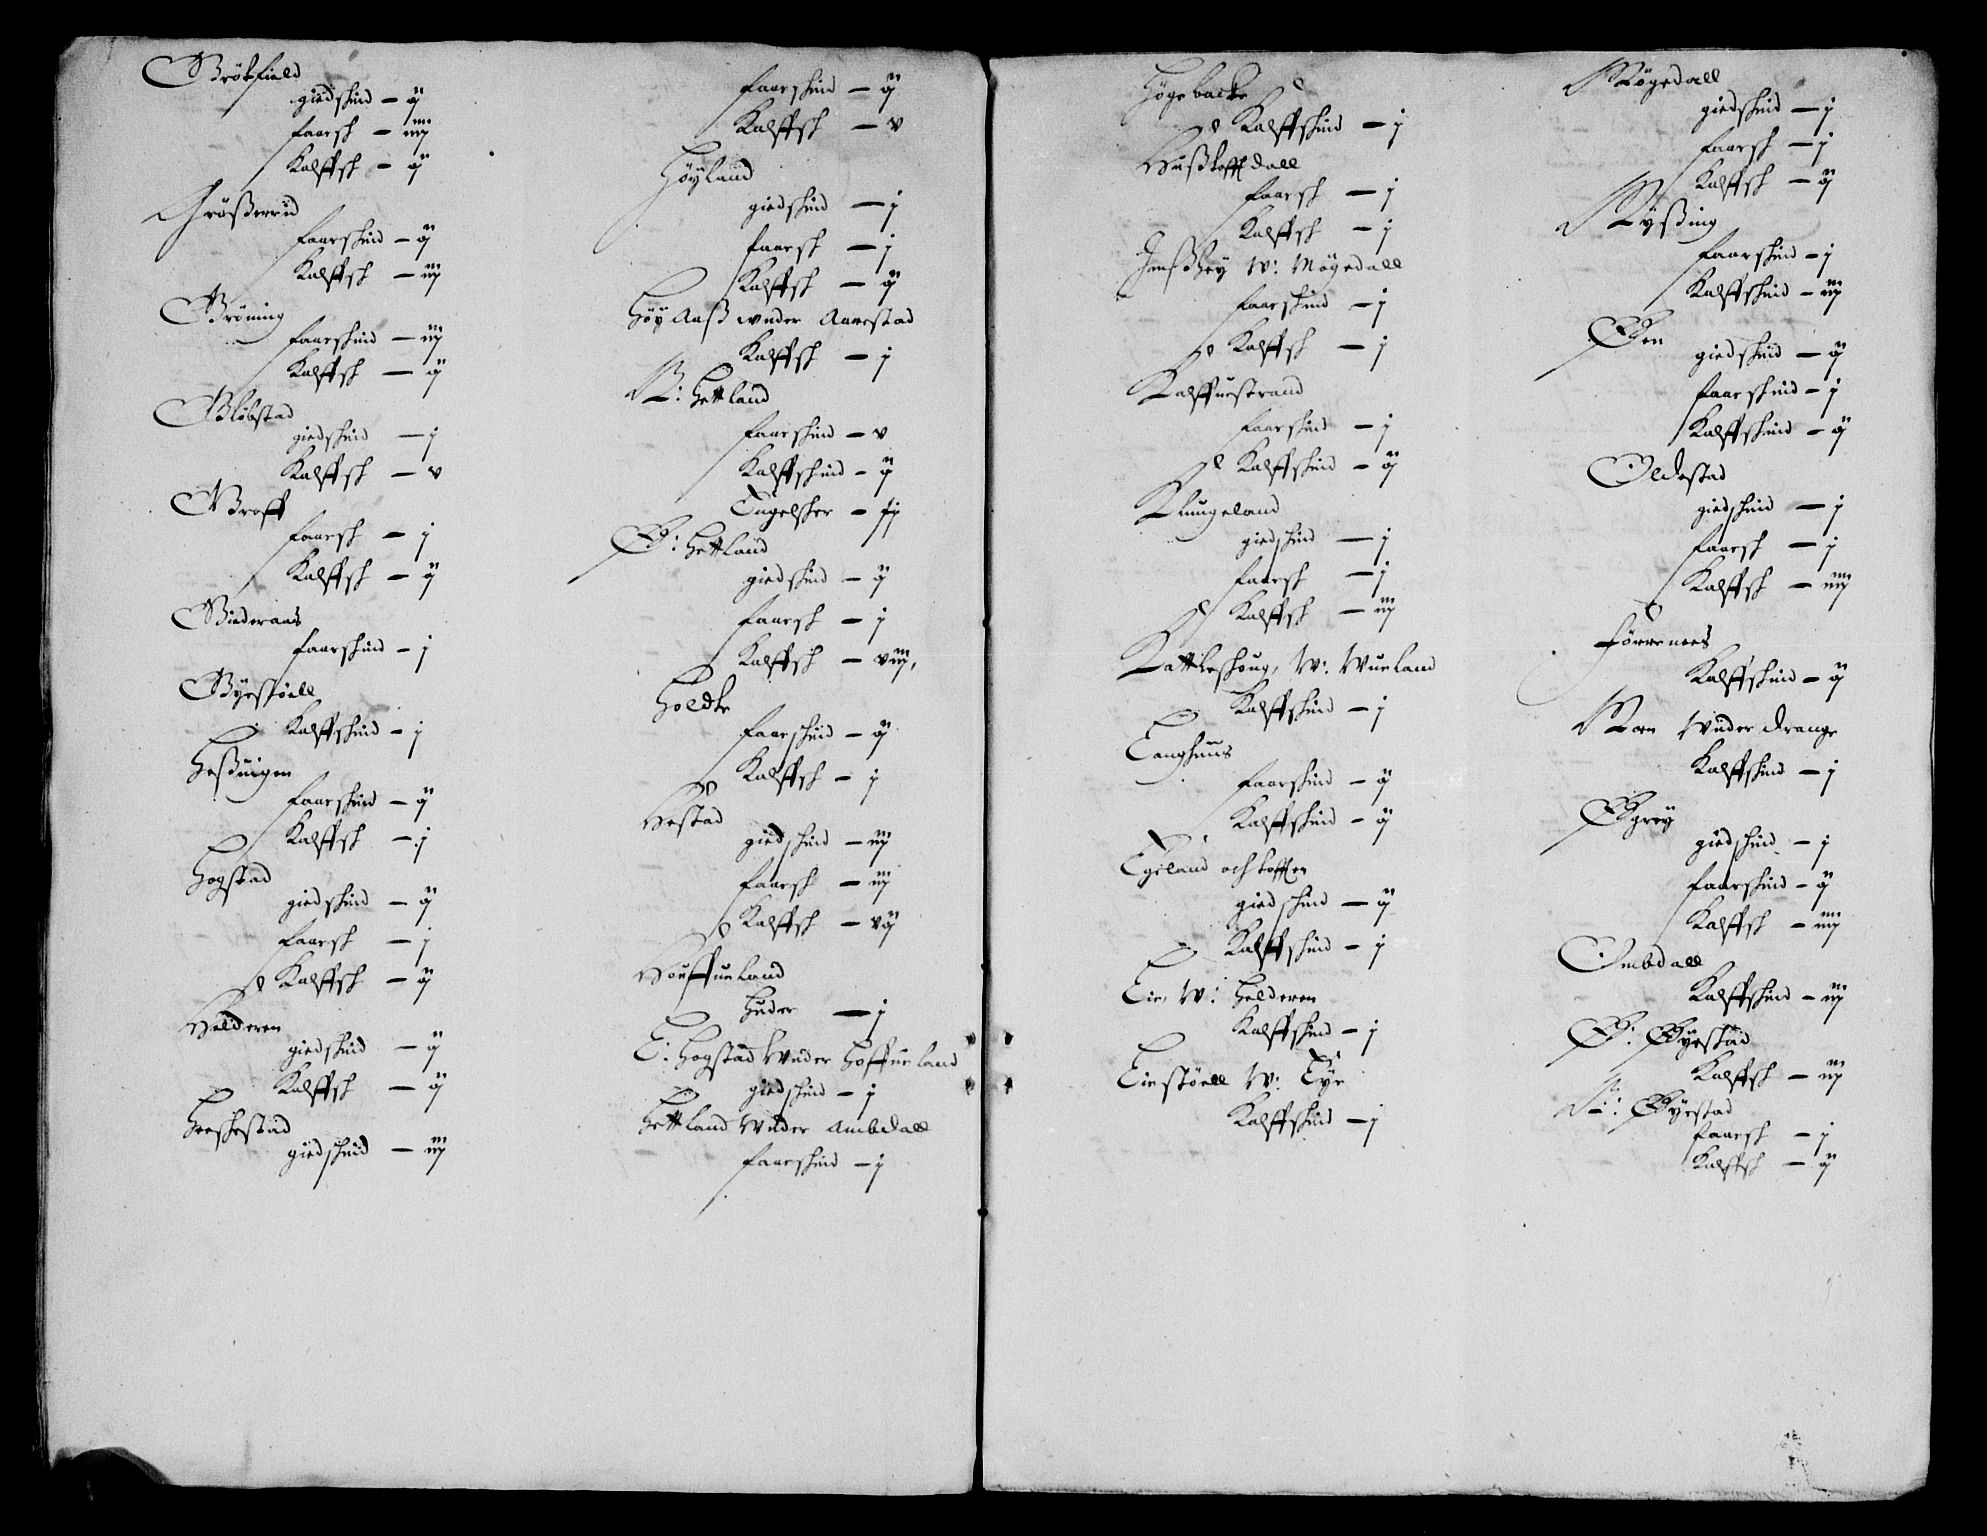 Brötfield
giedschind — ij
faarsch — iiij
Kalffsch — ij
Gröszerrud
faarschind — ij
Kalffsch — iij
Bröning
faarschind — iij
Kalffsch — ij
Blöbstad
giedschind — j
Kalffsch — v
Broff
faarsch — j
Kalffsch — ij
Biederaas
faarschind — j
Byestöell
Kalffschind — j
Heszuigen
faarschind — ij
Kalffsch — j
Hogstad
giedschind — ij
faarsch — j
Kalffsch — ij
Helderen
giedschind — ij
Kalffsch — ij
Heeschestad
giedschind — iij
faarschind — ij
Kalffsch — v
Höyland
giedschind — j
faarsch — j
Kalffsch — ij
Höy Aasz wnder Aarestad
Kalffsch — j
N: Hettland
faarschind — v
Kalffschind — ij
Ö: Hettland
giedschind — ij
faarsch — j
Kalffsch — viij
Holdte
faarschind — ij
Kalffsch — j
Hestad
giedschind — iij
faarsch — iij
Kalffsch — vij
Houffueland
Huder — j
L: Hogstad Wnder Hoffueland
giedschind — j
Hettland Wnder Ambdall
faarschind — j
Högebacke
Kalffschind — j
Huszkoffdall
faarsch — j
Kalffsch — j
Jenszhey W: Mögedall
faarschind — j
Kalffsch — j
Kalffuestrand
faarschind — j
Kalffschind — ij
Klungeland
giedschind — j
faarsch — j
Kalffsch — iij
Kattleshoug, W: Wueland
Kalffschind — j
Langhuus
faarschind — ij
Kalffschind — ij
Egeland och koffen
giedschind — ij
Kalffschind — j
Lie, W: Helderen
Kalffschind — j
Liestöell W: Eye
Kalffschind — j
Mögedall
giedschind — j
faarsch — j
Kalffsch — ij
Myszing
faarschind — j
Kalffschind — iij
Öen
giedschind — ij
faarschind — j
Kalffschind — ij
Oldestad
giedschind — j
faarsch — j
Kalffsch — iiij
Förrenees
Kalffschind — ij
Moen Wnder Drange
Kalffschind — j
Ögrey
giedschind — j
faarschind — ij
Kalffsch — iiij
Ombdall
Kalffschind — iij
Ö: Öyestad
Kalffsch — iij
N: Öyestad
faarsch — j
Kalffsch — ij